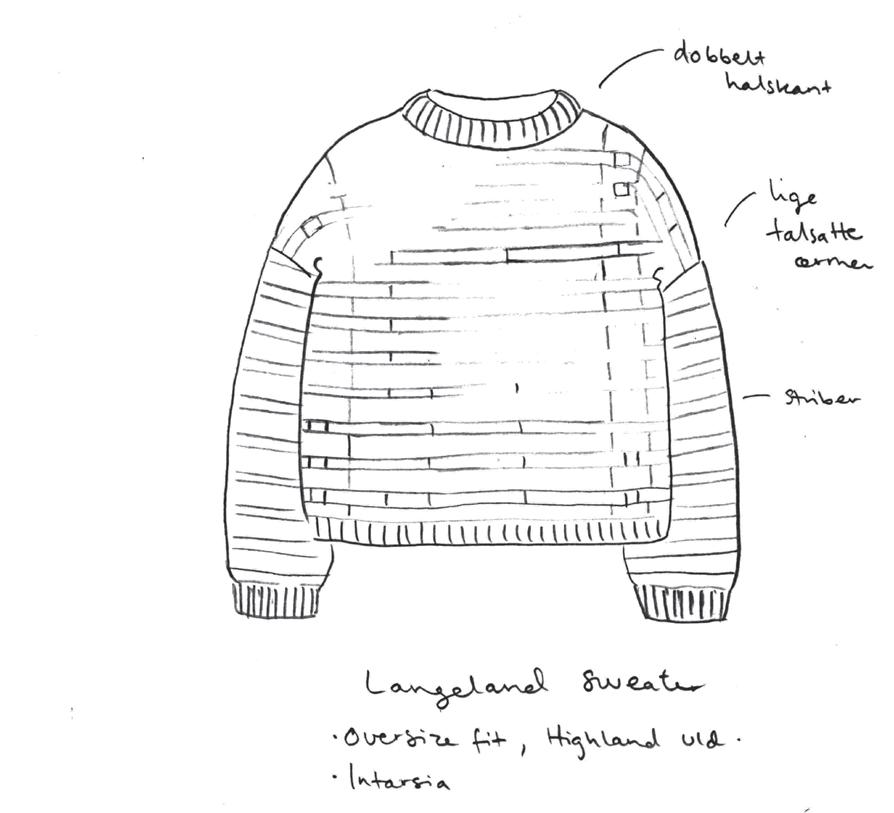 dobbelt
halskant
lige
talsatte
ærmer
striber
Langeland sweater
· Oversize fit, Highland uld.
· Intarsia